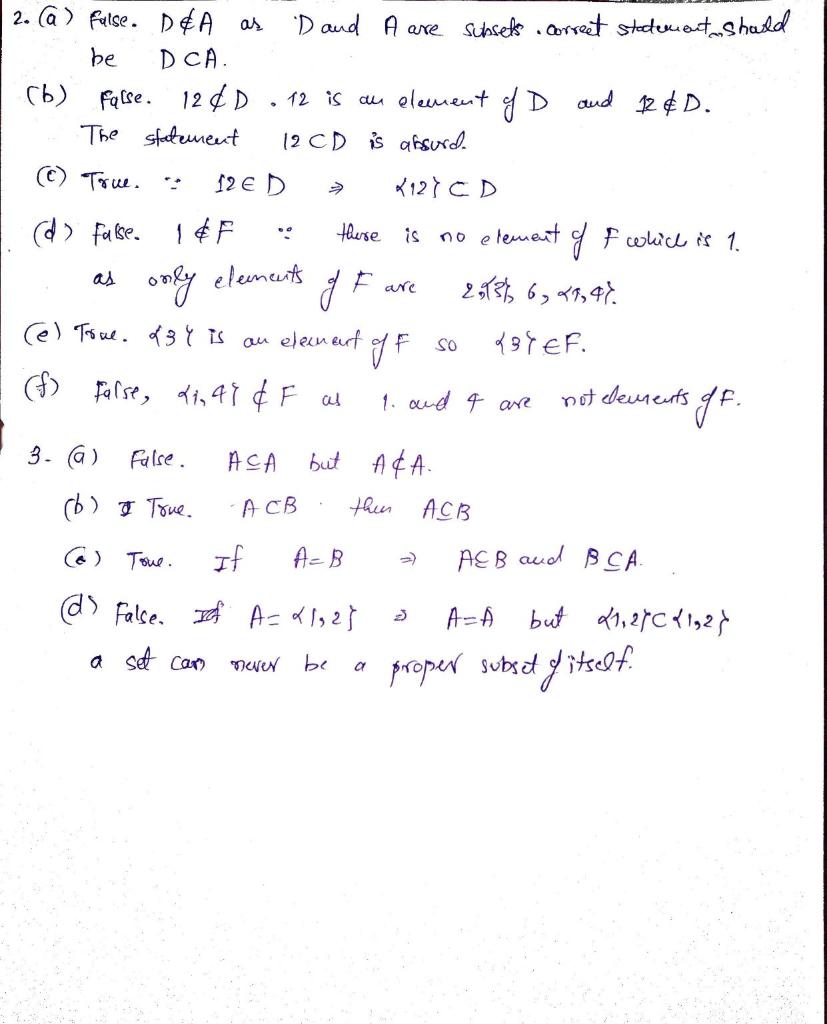 2. (a) False. D∉A as D and A are subsets. correct statement should
be D⊂A.
(b) False. 12⊄D. 12 is an element of D and 12⊄D.
The statement 12⊂D is absurd.
(c) True. ∵ 12∈D ⇒ {12}⊂D
(d) false. 1∉F ∵ there is no element of F which is 1.
as only elements of F are 2,{3}, 6, {1,4}.
(e) True. {3} is an element of F so {3}∈F.
(f) False, {1,4} ⊄ F as 1. and 4 are not elements of F.
3. (a) False. A⊆A but A⊄A.
(b) True. A⊂B then A⊆B
(c) True. If A=B ⇒ A⊆B and B⊆A.
(d) False. If A={1,2} ⇒ A=A but {1,2}⊂{1,2}
a set can never be a proper subset of itself.